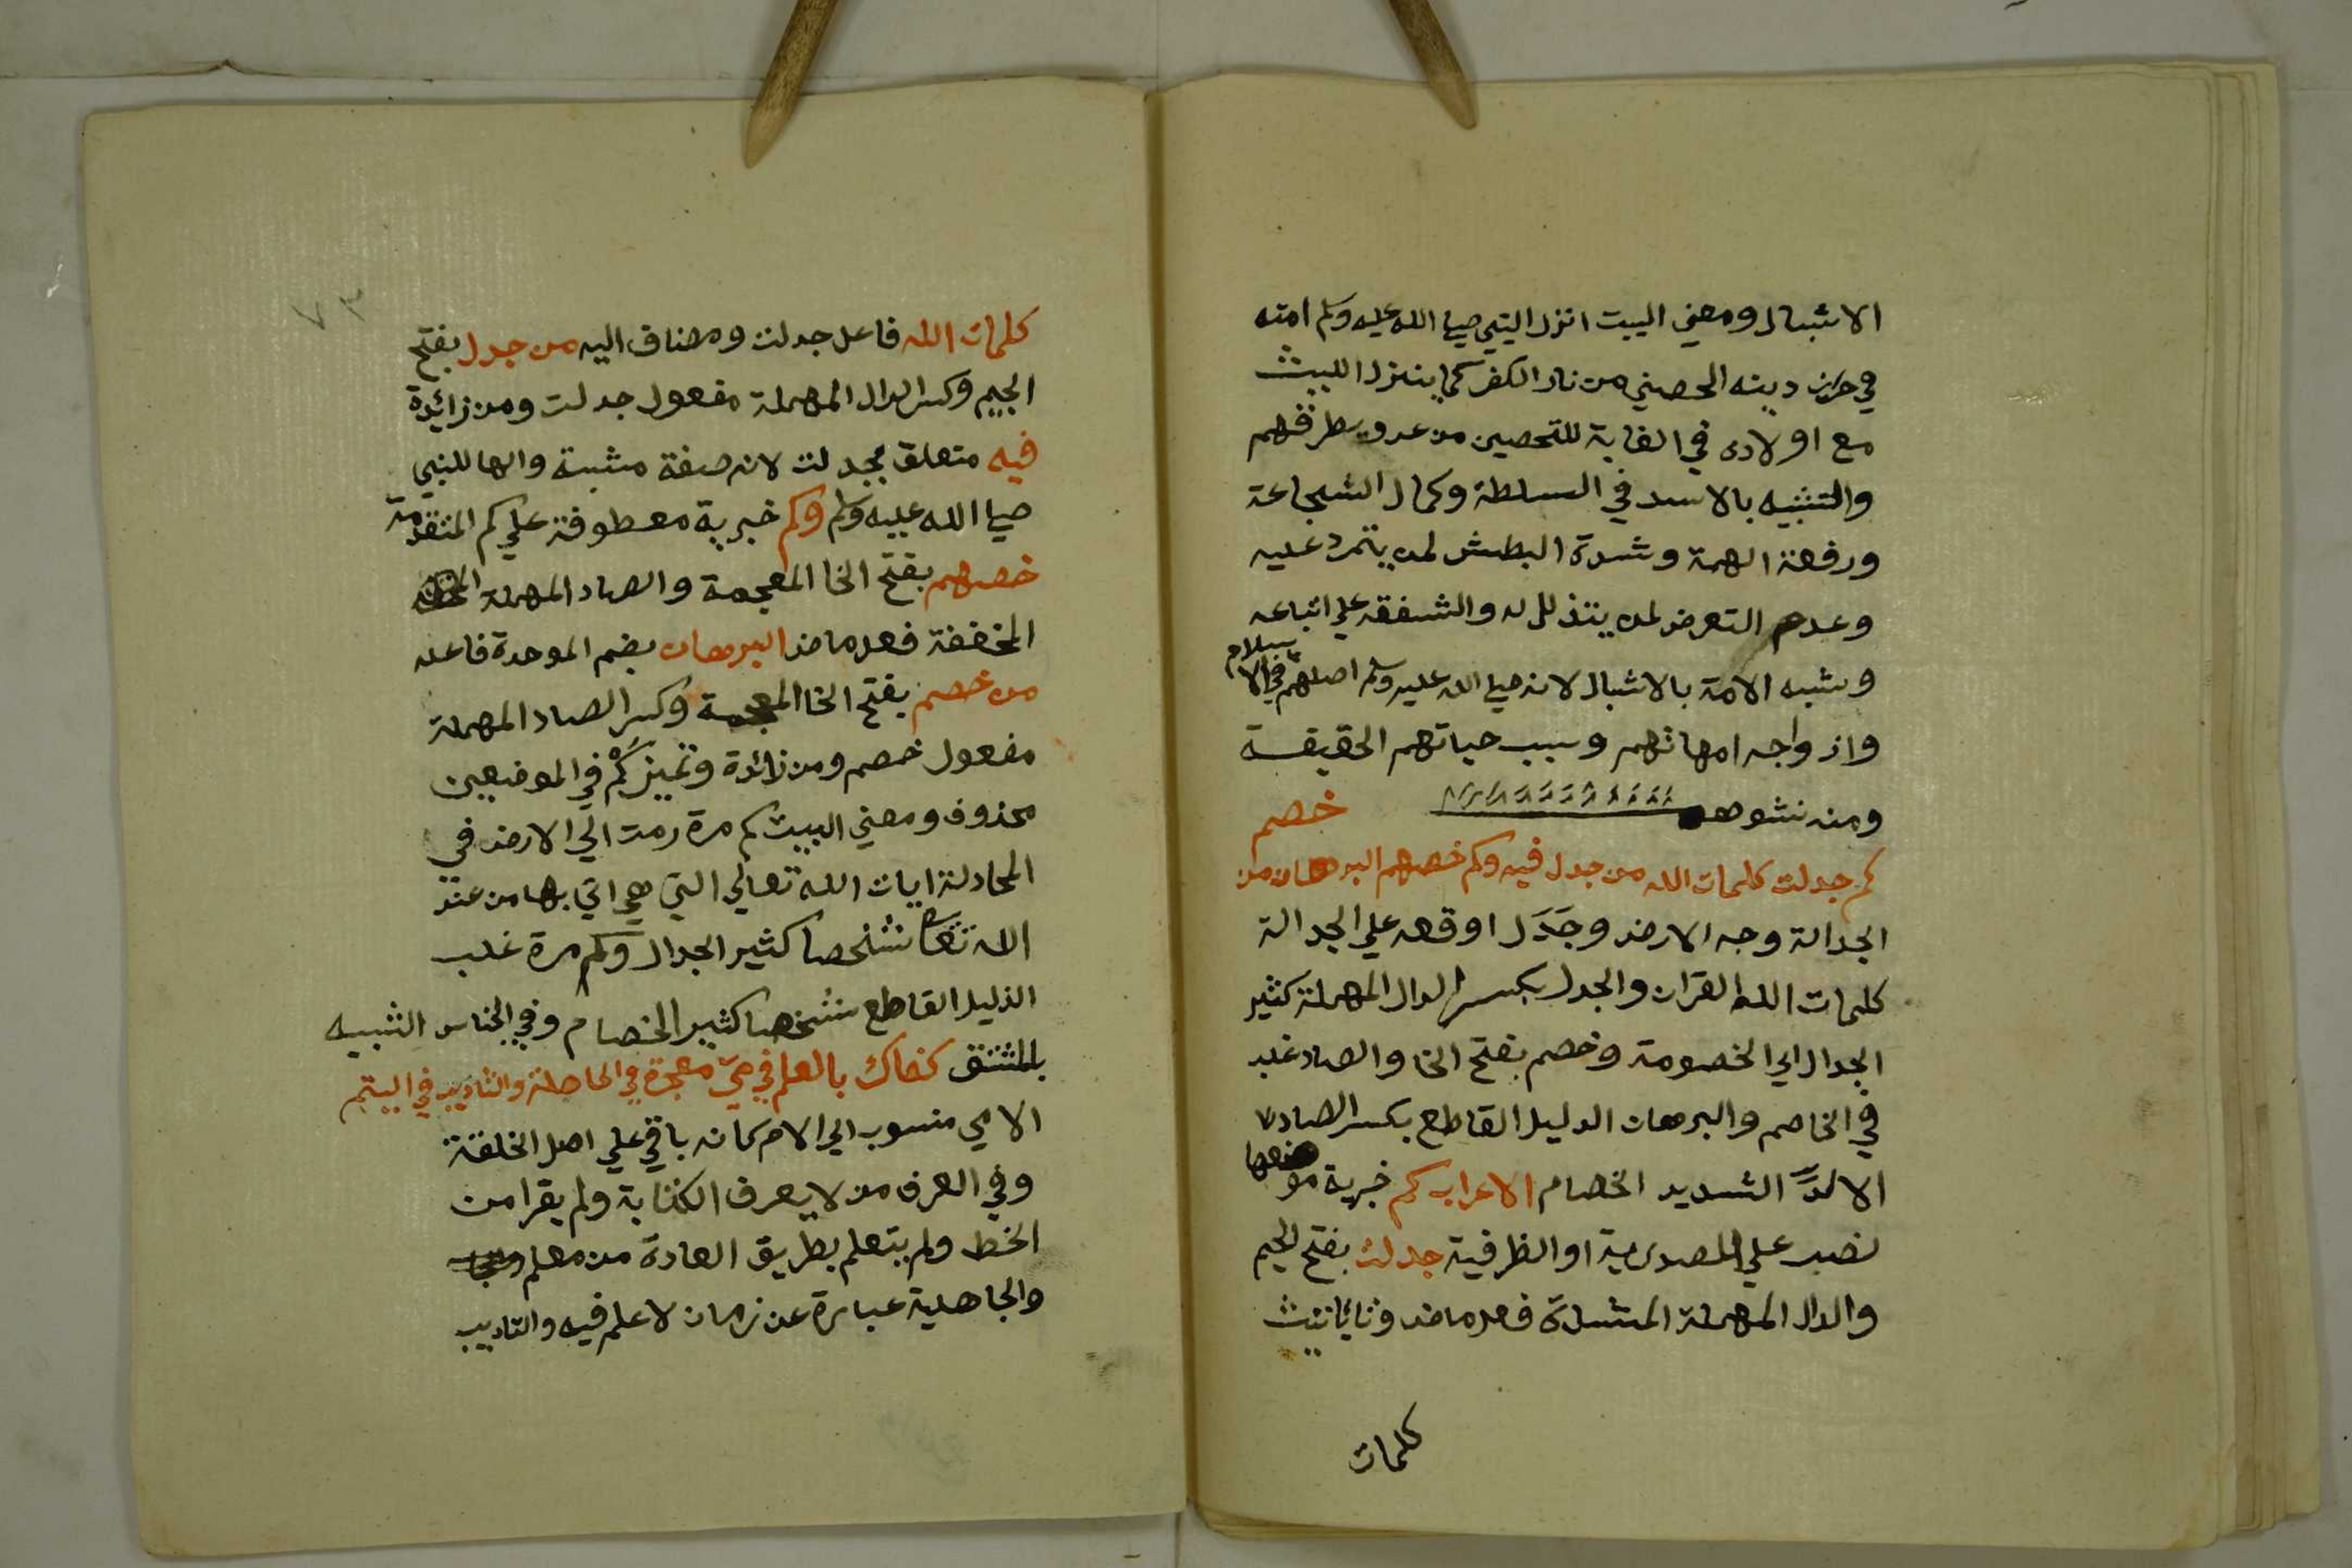 الاشبال ومعني البيت انزل النبي صلي الله عليه وسلم امته
في حرز دينه الحصني من نار الكفر كما ينزل الليث
مع اولاده في الغابة للتحصين من عدو يطرقهم
والتشبيه بالاسد في السلطة وكمال الشجاعة
ورفعة الهمة وشدة البطش لمن يتمرد عليه
وعدم التعرض لمن يتذلل له والشفقه علي اتباعه
وشبه الامة بالاشبال لانه صلي الله عليه وسلم اصلهم في الاسلام
وازواجه امهاتهم وسبب حياتهم الحقيقة
ومنه نشوهم خصم
كم جدلت كلمات الله من جدل فيه وكم خصهم البرهان من
الجدالة وجه الارض وجَدَل اوقعه علي الجدالة
كلمات الله القران والجدل بكسر الدال المهملة كثير
الجدال اي الخصومة وخصم بفتح الخا والصاد غلب
في الخاصم والبرهان الدليل القاطع بكسر الصاد
الالدّ الشديد الخصام الاعراب كم خبرية موضعها
نصب علي المصدرية او الظرفية جدلت بفتح الجيم
والدال المهملة المشددة فعل ماض وتا تانيث
كلمات
٧٣
كلمات الله فاعل جدلت ومضاف اليه من جدل بفتح
الجيم وكسر الدال المهملة مفعول جدلت ومن زائدة
فيه متعلق بجدلت لانه صفة مشبة والها للنبي
صلي الله عليه وسلم وكم خبرية معطوفة علي كم المتقدمة
خصهم بفتح الخا المعجمة والصاد المهملة
المخففة فعل ماض البرهان بضم الموحدة فاعله
من خصم بفتح الخا المعجمة وكسر الصاد المهملة
مفعول خصم ومن زائدة وتميز كَمْ في الموضعين
محذوف ومعني البيت كم مرة رمت الي الارض في
المجادلة ايات الله تعالي التي هي اتي بها من عند
الله تعا شخصا كثير الجدال وكم مرة غلب
الدليل القاطع شخصا كثير الخصام وفي الجناس الشبيه
بالمشتق كفاك بالعلم في اميّ معجزة في الجاهلة والتاديب في اليتم
الامي منسوب الي الام كانه باقي علي اصل الخلقة
وفي العرف من لا يعرف الكتابة ولم يقرا من
الخط ولم يتعلم بطريق العادة من معلم
والجاهلية عبارة عن زمان لا علم فيه والتاديب